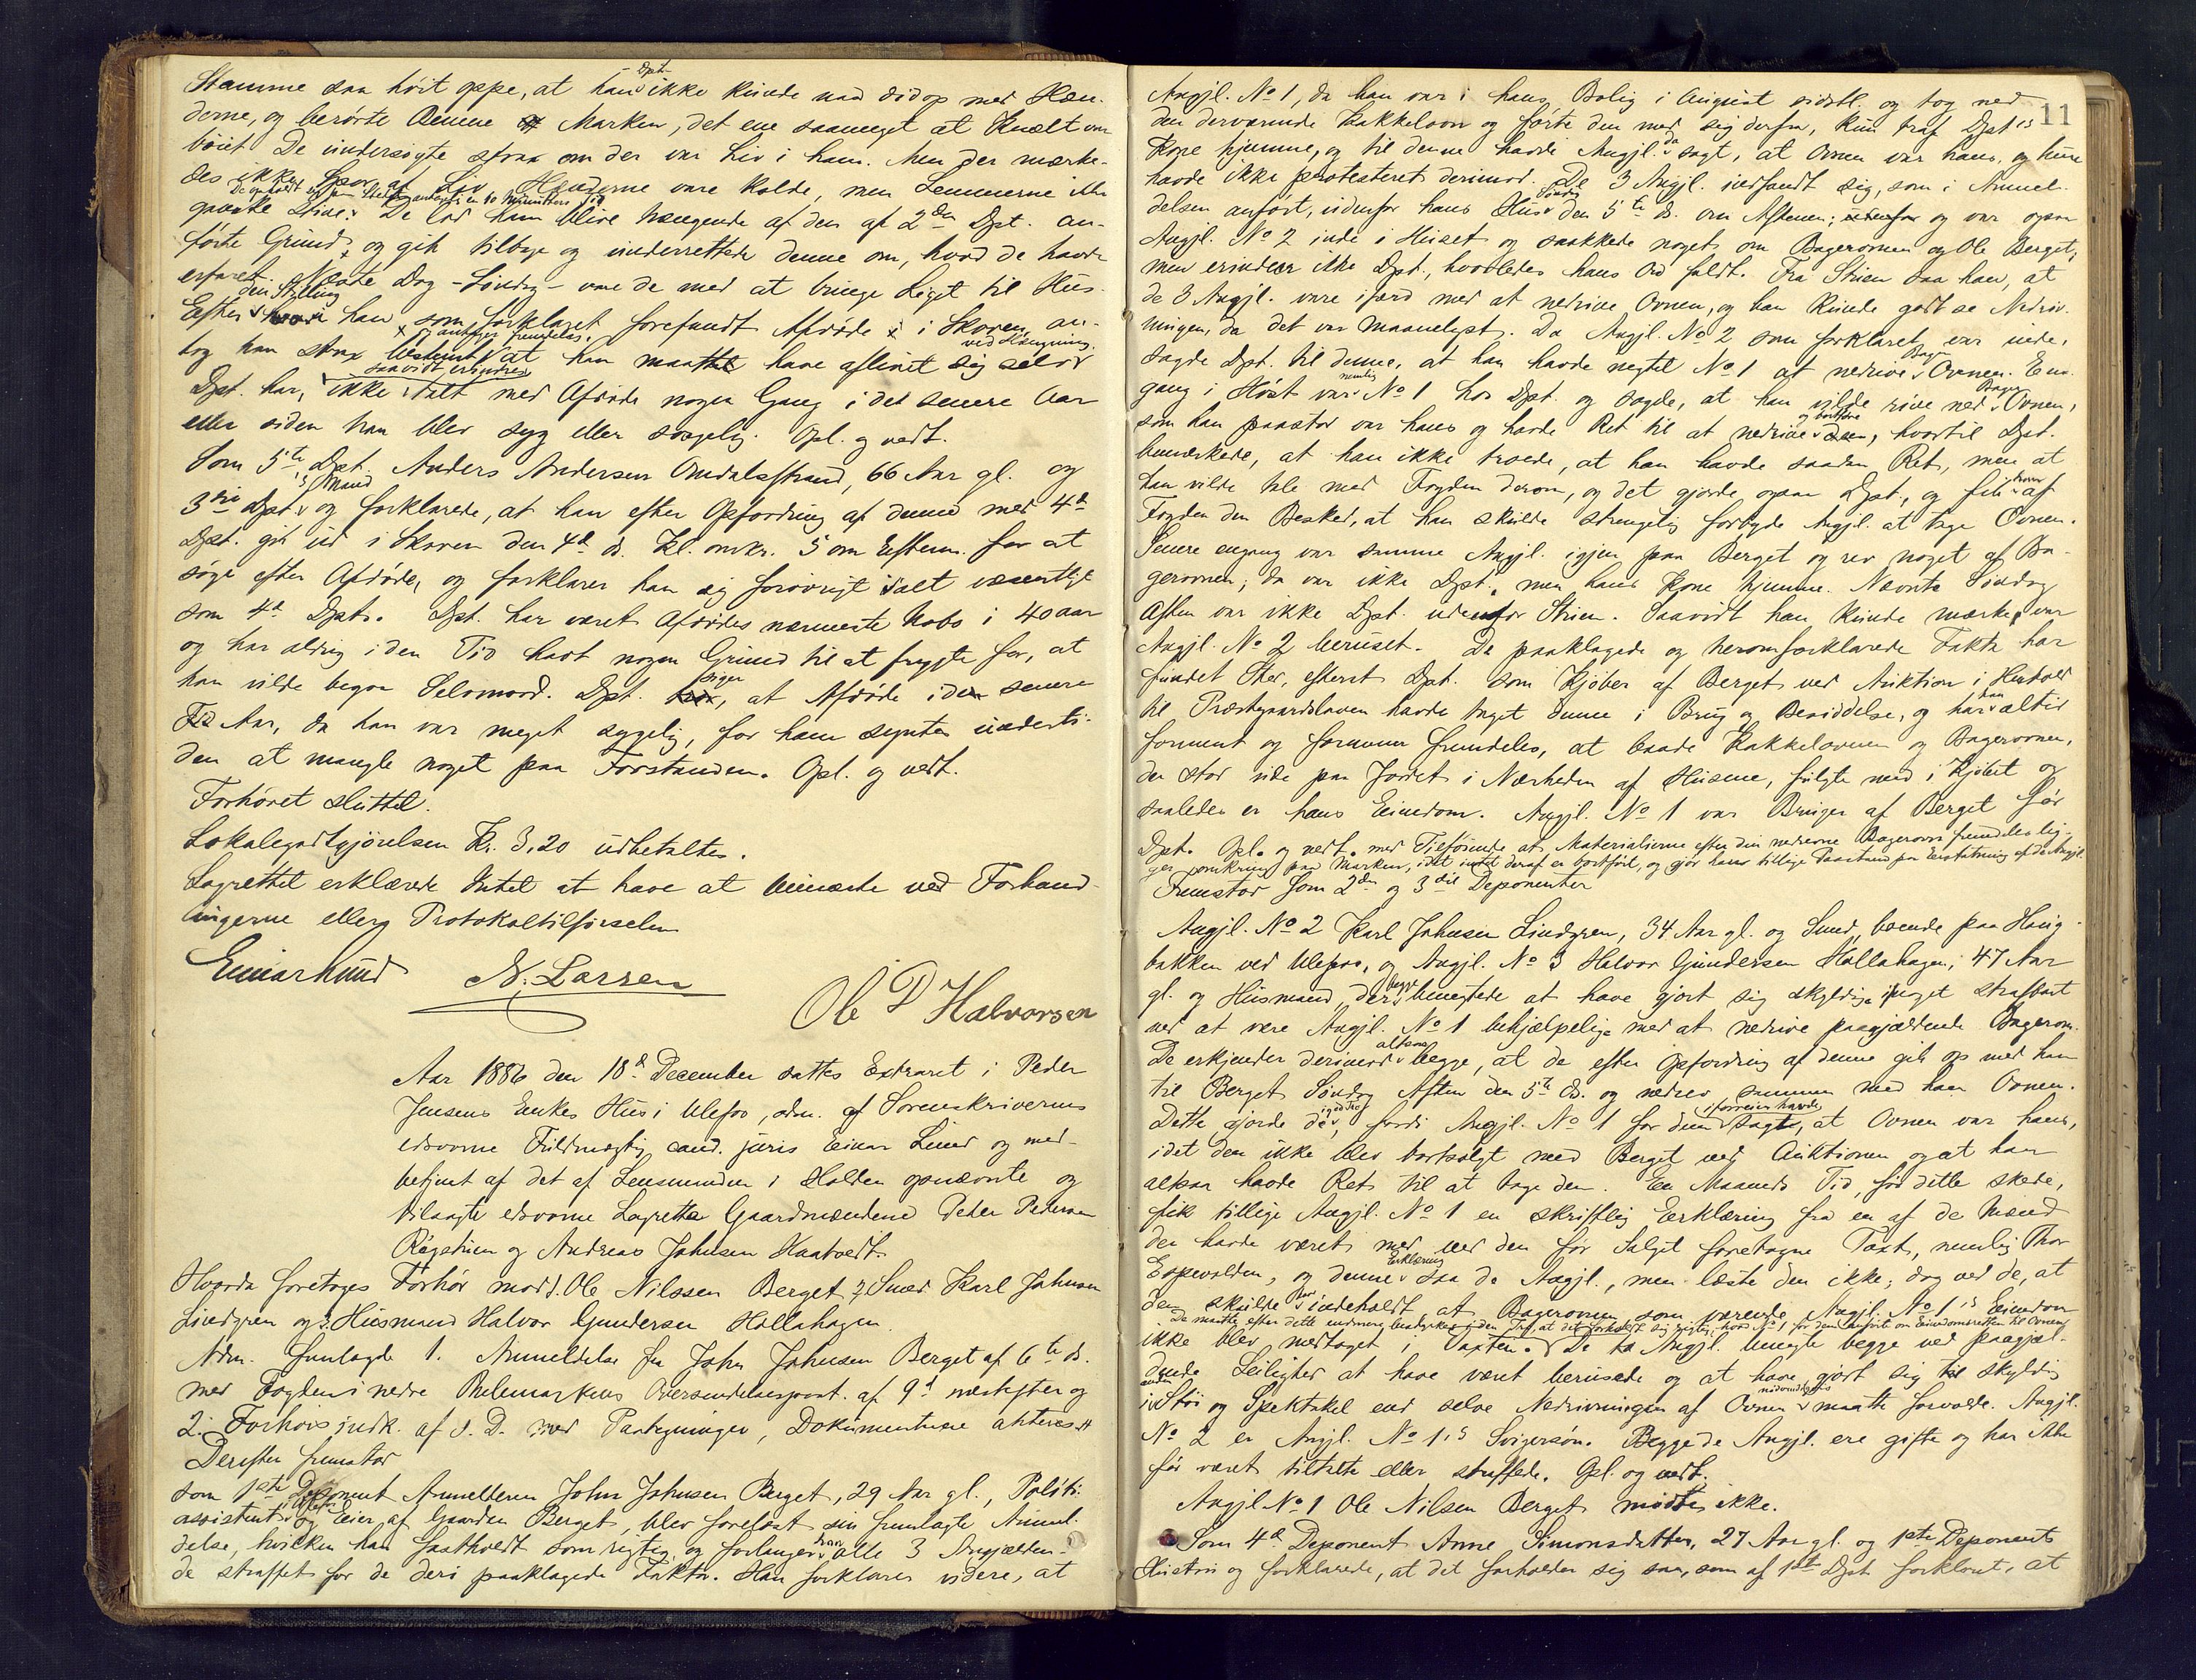 Stamme saa höit oppe, at han -Dpt- ikke kunde naa didop med Hæn-
derne, og berörte Benene Marken, det ene saameget at Knæet var
böiet. De undersögte strax om der var Liv i ham. Men der mærke-
des ikke Spor af Liv. Hænderne vare kolde, men Lemmerne ikke
De opholdt sig paa Stedet antagelig en 10 Minutters Tid
ganske stive. De lod ham blive hængende af den af 2den Dpt. an-
förte Grund, og gik tilbage og underrettede denne om, hvad de havde
erfaret. Næste Dag - Söndag - vare de med at bringe Liget til Hus.
Efter den Stilling hvori han som forklaret forefandt Afdöde i Skoven, an-
tog han strax bestemt og antager fremdeles, at han maatte have aflivet sig selv ved Hængning.
Dpt. har, saavidt erindres ikke talt med Afdöde nogen Gang i det senere Aar
eller siden han blev syg eller svagelig. Opl. og vedt.
Som 5te Dpt. Anders Andersen Omdalsstrand, 66 Aar gl. og
3die Dpts Mand og forklarede, at han efter Opfordring af denne med 4de
Dpt. gik ud i Skoven den 4de ds. Kl. omkr. 5 om Efterm. for at
söge efter Afdöde, og forklarer han sig forövrigt i alt væsentligt
som 4de Dpt. Dpt. har været Afdödes nærmeste Nabo i 40 aar
og har aldrig i den Tid havt nogen Grund til at frygte for, at
han vilde begaa Selvmord. Dpt. siger, at Afdöde i den senere
Tid Aar, da han var meget sygelig, for ham syntes undertí-
den at mangle noget paa Forstanden. Opl. og vedt.
Forhöret sluttet.
Lokalegodtgjörelsen Kr. 3,20 udbetaltes.
Lagrettet erklærede Intet at have at bemærke ved Forhand-
lingerne eller Protokoltilförselen
Einar Lund N. Larsen
Ole P Halvorsen
Aar 1886 den 18de December sattes Extraret i Peder
Jensens Enkes Hus i Ulefos, adm. af Sorenskriverens
edsvorne Fuldmægtig cand. juris Einar Lund og med-
betjent af det af Lensmanden i Holden opnævnte og
tilsagte edsvorne Lagrette Gaardmændene Peder Pedersen
Rögstuen og Andreas Johnsen Haatvedt.
Hvorda foretoges Forhör mod 1. Ole Nilssen Berget, 2. Smed Karl Johnsen
Lindgren og 3. Husmand Halvor Gundersen Hollahagen.
Adm. fremlagde 1. Anmeldelse fra John Johnsen Berget af 6te ds.
med Fogden i nedre Thelemarkens Oversendelsespaat. af 9de næstefter og
2. Forhörsindk. af s. D. med Paategninger, Dokumenterne akteres.
Derefter fremstod
som 1ste Deponent Anmelderen John Johnsen Berget, 29 Aar gl., Politi-
assistent i Ulefos og Eier af Gaarden Berget, blev forelæst sin fremlagte Anmel-
delse, hvilken han fastholdt som rigtig og forlanger han alle 3 Angjælden-
de straffet for de deri paaklagede Fakta. Han forklarer videre, at
11
Angjl. No 1, da han var i hans Bolig i August sidstl. og tog ned
den derværende Kakkelovn og förte den med sig derfra, kun traf Dpts
Kone hjemme, og til denne havde Angjl. da sagt, at Ovnen var hans, og hun
havde ikke protesteret derimod. De 3 Angjl. indfandt sig, som i Anmel-
delsen anfört, udenfor hans Hus Söndag den 5te ds. om Aftenen; og var ogsaa
Angjl. No 2 inde i Huset og snakkede noget om Bagerovnen og Ole Berget,
men erindrer ikke Dpt., hvorledes hans Ord faldt. Fra Stuen saa han, at
de 3 Angjl. vare ifærd med at nedrive Ovnen, og han kunde godt se Nedriv-
ningen, da det var maanelyst. Da Angjl. No 2 som forklaret var inde,
sagde Dpt. til denne, at han havde negtet No 1 at nedrive Bager Ovnen. En-
gang i Höst var nemlig No 1 hos Dpt. og sagde, at han vilde rive ned Bager Ovnen,
som han paastod var hans og havde Ret til at nedrive og bortföre den, hvortil Dpt.
bemærkede, at han ikke troede, at han havde saadan Ret, men at
han vilde tale med Fogden derom, og det gjorde ogsaa Dpt., og fik han af
Fogden den Besked, at han skulde strengelig forbyde Angjl. at tage Ovnen.
Senere engang var samme Angjl. igjen paa Berget og rev noget af Ba-
gerovnen; da var ikke Dpt., men hans Kone hjemme. Nævnte Söndag
Aften var ikke Dpt. udenfor Stuen. Saavidt han kunde mærke, var
Angjl. No 2 beruset. De paaklagede og heromforklarede Fakta har
fundet Sted, efterat Dpt. som Kjöber af Berget ved Auktion i Henhold
til Præstegaardsloven havde taget denne i Brug og Besiddelse, og har han altid
forment og formener fremdeles, at baade Kakkelovnen og Bagerovnen,
der stod ude paa Jordet i Nærheden af Husene, fulgte med i Kjöbet og
saaledes er hans Eiendom. Angjl. No 1 var Bruger af Berget för
Dpt. Opl. og vedt. med Tilföiende at Materialierne efter den nedrevne Bagerovn fremdeles lig-
ger omkring paa Marken, idet intet deraf er bortfört, og gjör han tillige Paastand paa Erstatning af de Angjl.
Fremstod som 2den og 3die Deponenter
Angjl. No 2 Karl Johnsen Lindgren, 34 Aar gl. og Smed, boende paa Haug-
bakken ved Ulefos, og Angjl. No 3 Halvor Gundersen Hollahagen, 47 Aar
gl. og Husmand, der begge benegtede at have gjort sig skyldige i noget strafbart
ved at være Angjl. No 1 behjælpelige med at nedrive paagjældende Bagerovn.
De erkjender derimod altsaa begge, at de efter Opfordring af denne gik op med ham
til Berget Söndag Aften den 5te ds. og nedrev sammen med ham Ovnen.
Dette gjorde de i god Tro, fordi Angjl. No 1 for dem iforveien havde sagt, at Ovnen var hans,
idet den ikke blev bortsolgt med Berget ved Auktionen og at han
altsaa havde Ret til at tage den. En Maaneds Tid, för dette skede,
fik tillige Angjl. No 1 en skriftlig Erklæring fra en af de Mænd
der havde været med ved den för Salget foretagne Taxt, nemlig Thor
Espevolden, og denne Erklæring saa de Angjl., men læste den ikke; dog ved de, at
den skulde have indeholdt, at Bagerovnen som værende Angjl. No 1's Eiendom
De maatte efter dette endmere bestyrkes i den Tro, at det forholdt sig rigtig, hvad No 1 for dem anfört om Eiendomsretten til Ovnen
ikke blev medtaget i Taxten. De Angjl. benegte begge ved paagjæl-
dende Leilighed at have været berusede og at have gjort sig skyldig
i anden Stöi og Spektakel end selve Nedrivningen af Ovnen nödvendigvis maatte forvolde. Angjl.
No 2 er Angjl. No 1's Svigersön. Begge de Angjl. ere gifte og har ikke
för været tiltalte eller straffede. Opl. og vedt.
Angjl No 1 Ole Nilsen Berget mödte ikke.
Som 4de Deponent Anne Simonsdatter, 27 Aar gl. og 1ste Deponents
Hustru og forklarede, at det forholder sig saa, som af 1ste Dpt. forklaret, at